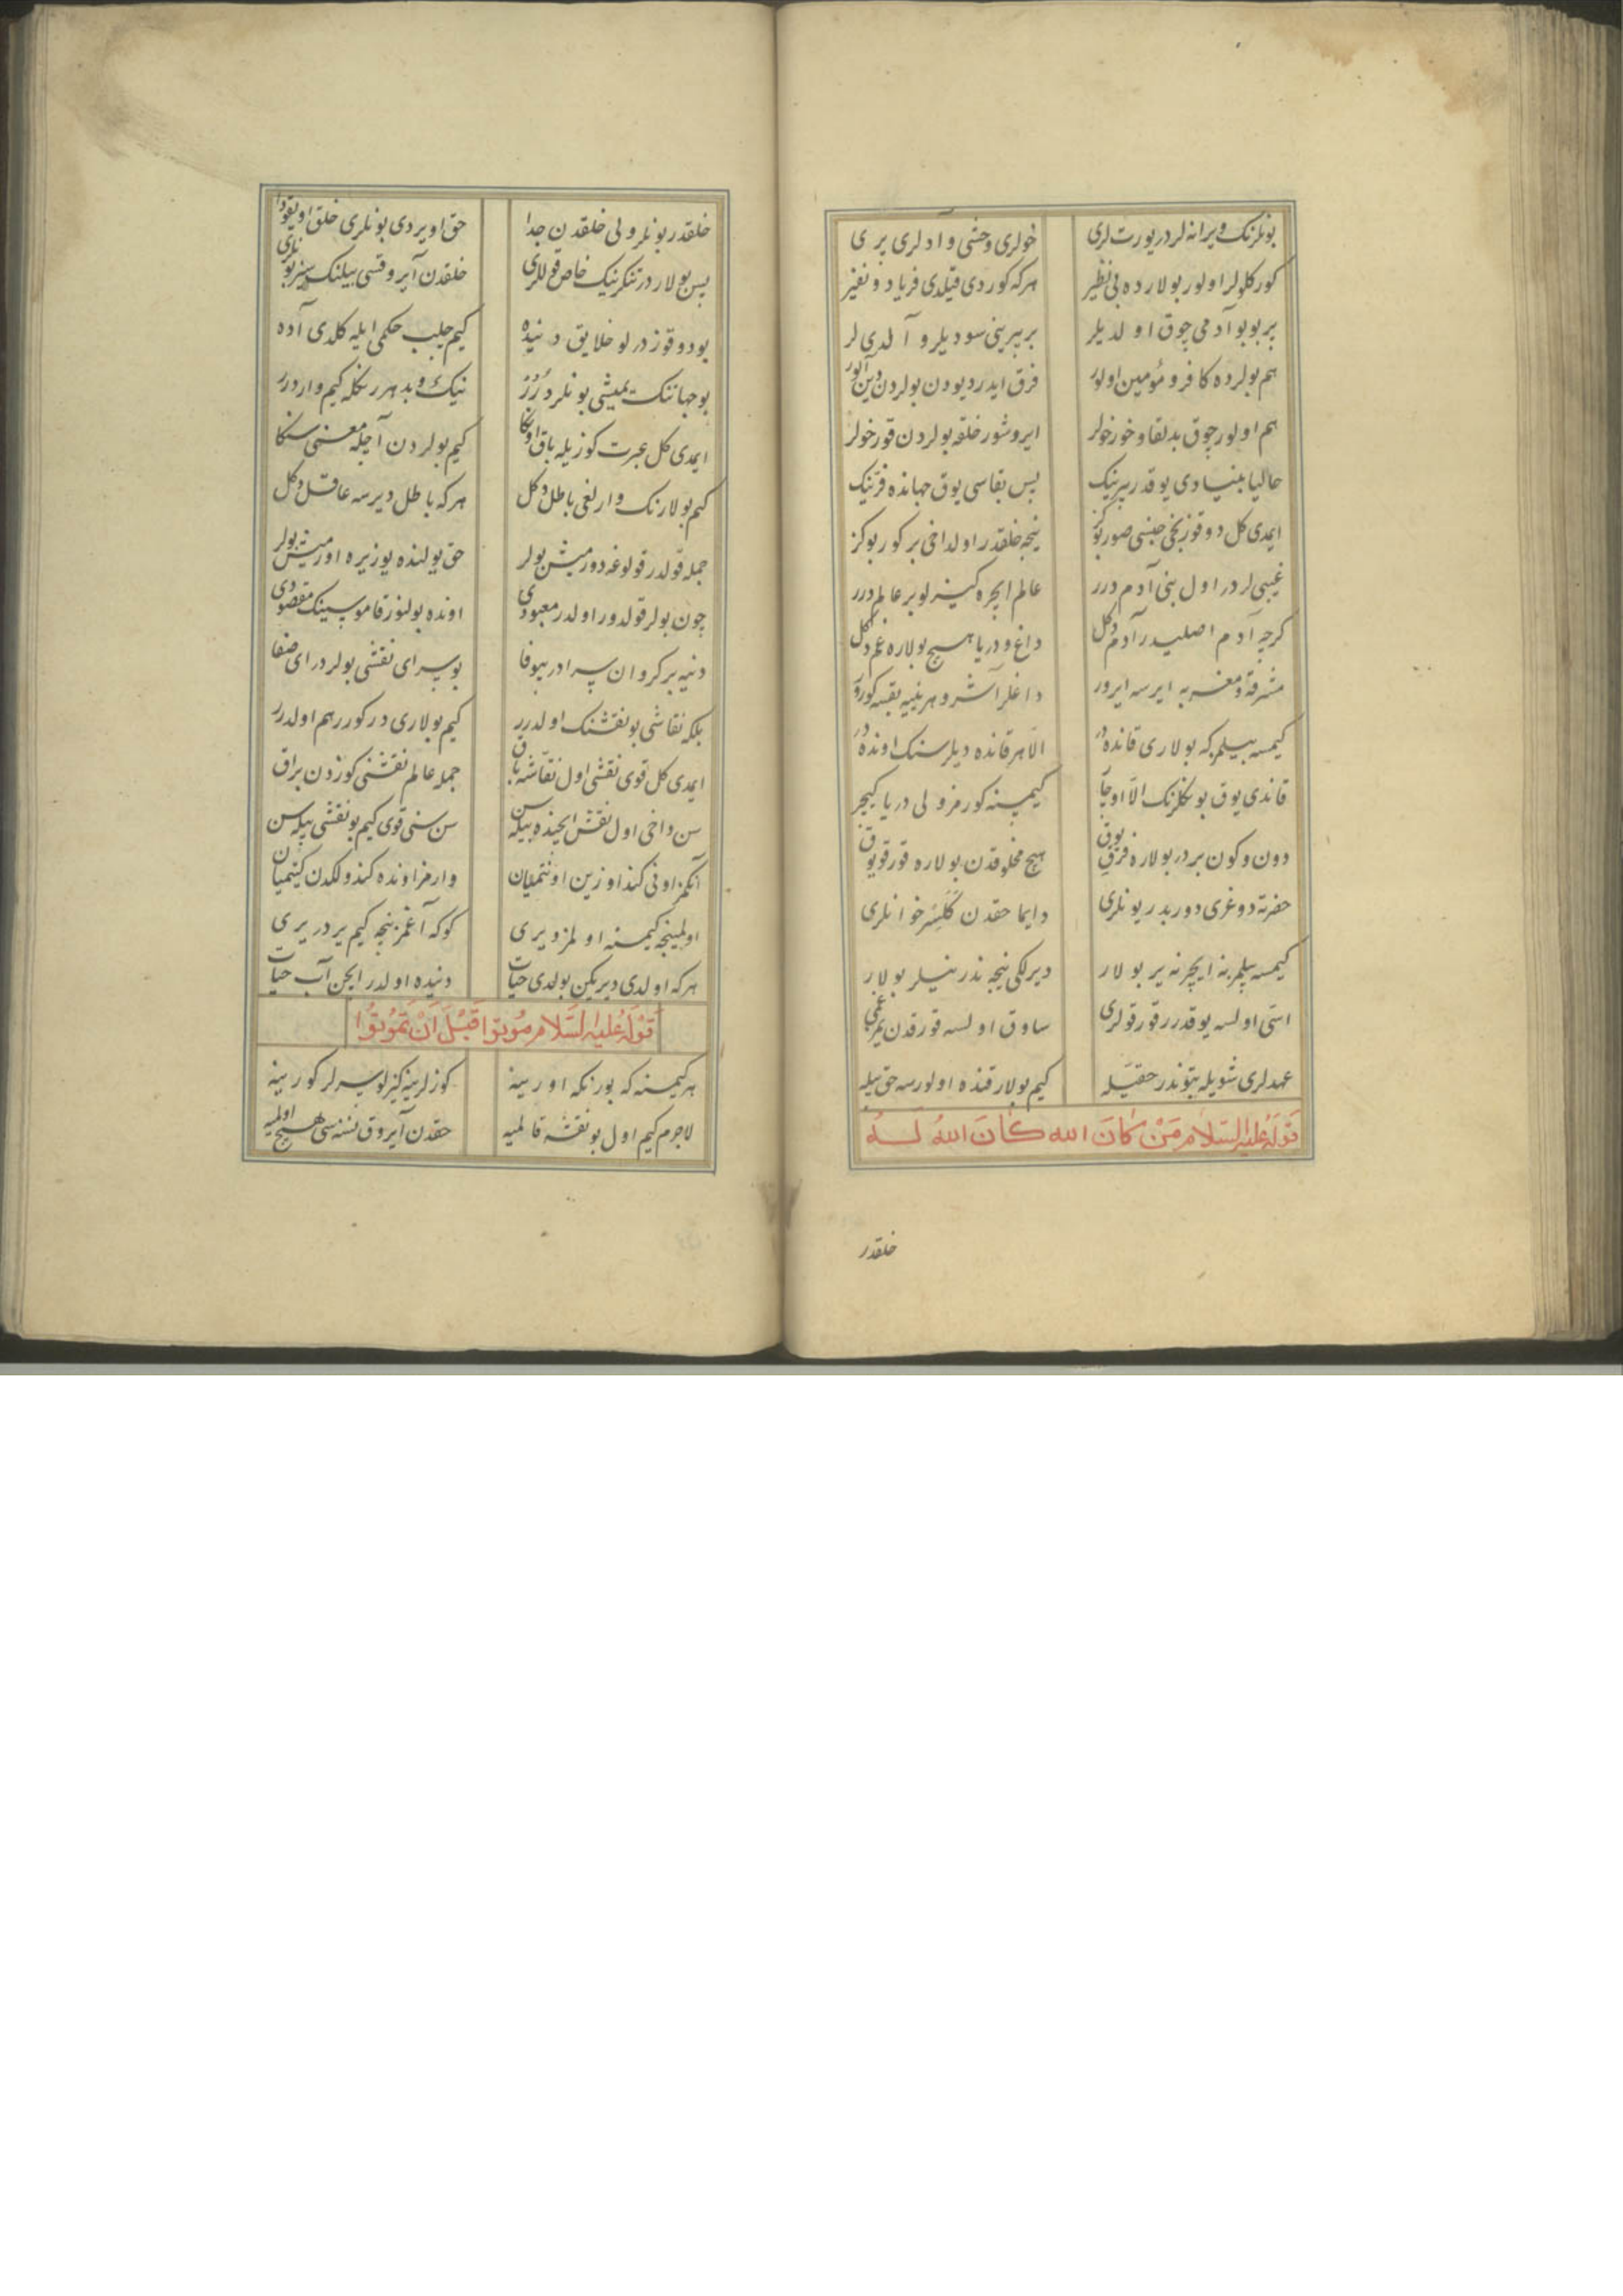 بونلرنک ویرانه لردر یورت لری خولری وحشی و ادلری پری
کورکلولر اولور بولارده بی نظیر هرکه کوردی قیلدی فریاد و نفیر
بر بو بو آدمی چوق اولدیلر بر برینی سودیلر و آلدی لر
هم بولرده کافر و مؤمین اولور فرق ایدر دیودن بولردن دین آلور
هم اولور چوق بدلقا و خورخولر ایروشور خلقه بولردن قورخولر
حالیا بنیادی یوقدر بیرنیک پس بقاسی یوق جهانده
ایمدی کل دوقوزنجی جنسی صور نیجه خلقدر اول داخی بر کور بوکز
غیبی لردر اول بنی آدم درر عالم ایچره کیزلو بر عالم درر
کرچه آدم اصلیدر آدم دکل داغ و دریا هیچ بولاره غم دکل
مشرقه و مغربه ایرسه ایرور داغلر آشر و هر نییه بقسه کورور
کیمسه بیلمز که بولاری قانده در الا هر قانده دیلرسنک اونده در
قاندی یوق بونلرنک الا اوچا کیمسنه کورمز ولی دریا کیچر
دون و کون بردر بولاره فرق یوق هیچ مخلوقدن بولاره قورقو یوق
حضرته دوغری دوریدر یونلری دایما حقدن کلیسر خوانلری
کیمسه بیلمز نه ایچر نه یر بولار دیرلکی نیجه ندر نیلر بولار
اسّی اولسه یوقدرر قورقولری ساوق اولسه قورقدن یوق
عهدلری شویله بتوندر حقیله کیم بولار قنده اولورسه حق بیله
قوله علیه السلام من کان الله کان الله له
خلقدر
خلقدر بونلر ولی خلقدن جدا حق اویردی بونلری خلق اویقودا
پس بولاردر تنکرینیک خاص قوللری خلقدن آیروقسی بیلنک سیز بونلری
بو دوقوز درلو خلایق دنیده کیم چلب حکمی ایله کلدی آده
بو جهاننک یمیشی بونلر درر نیک و بد هر رنکله کیم وار درر
ایمدی کل عبرت کوزیله باق اونکا کیم بولردن آچیله معنی سنکا
کیم بولارنک وارلغی باطل دکل هرکه باطل دیرسه عاقل دکل
جمله قولدر قولوغه دورمیش بولر حق یولنده یوز یره اورمیش بولر
چون بولر قولدور اولدر معبودی اونده بولنور قاموسینک مقصودی
دنیه بر کروان سرادر بیوفا بو سرای نقشی بولردر ای صفا
بلکه نقاشی بو نقشنک اولدرر کیم بولاری درکورر هم اولدرر
ایمدی کل قوی نقشی اول نقاشه باق جمله عالم نقشنی کوزدن براق
سن داخی اول نقش ایچنده بیله سن سن سنی قوی کیم بو نقشی بیله سن
آنکمز اونی کندو اوزین اونتمیان وارمز اونده کندولکدن کیتمیان
اولمینجه کیمسنه اولمز دیری کوکه آغمز نیجه کیم یردر یری
هرکه اولدی دیریکن بولدی حیات دنیده اولدر ایچن آب حیات
قوله علیه السلام موتوا قبل ان تموتوا
هر کیمسنه که بو رنکه اورینه کوزلرینه کیزلو سرلر کورینه
لاجرم کیم اول بو نقشه قالمیه حقدن آیروق نسنه سی هیچ اولمیه